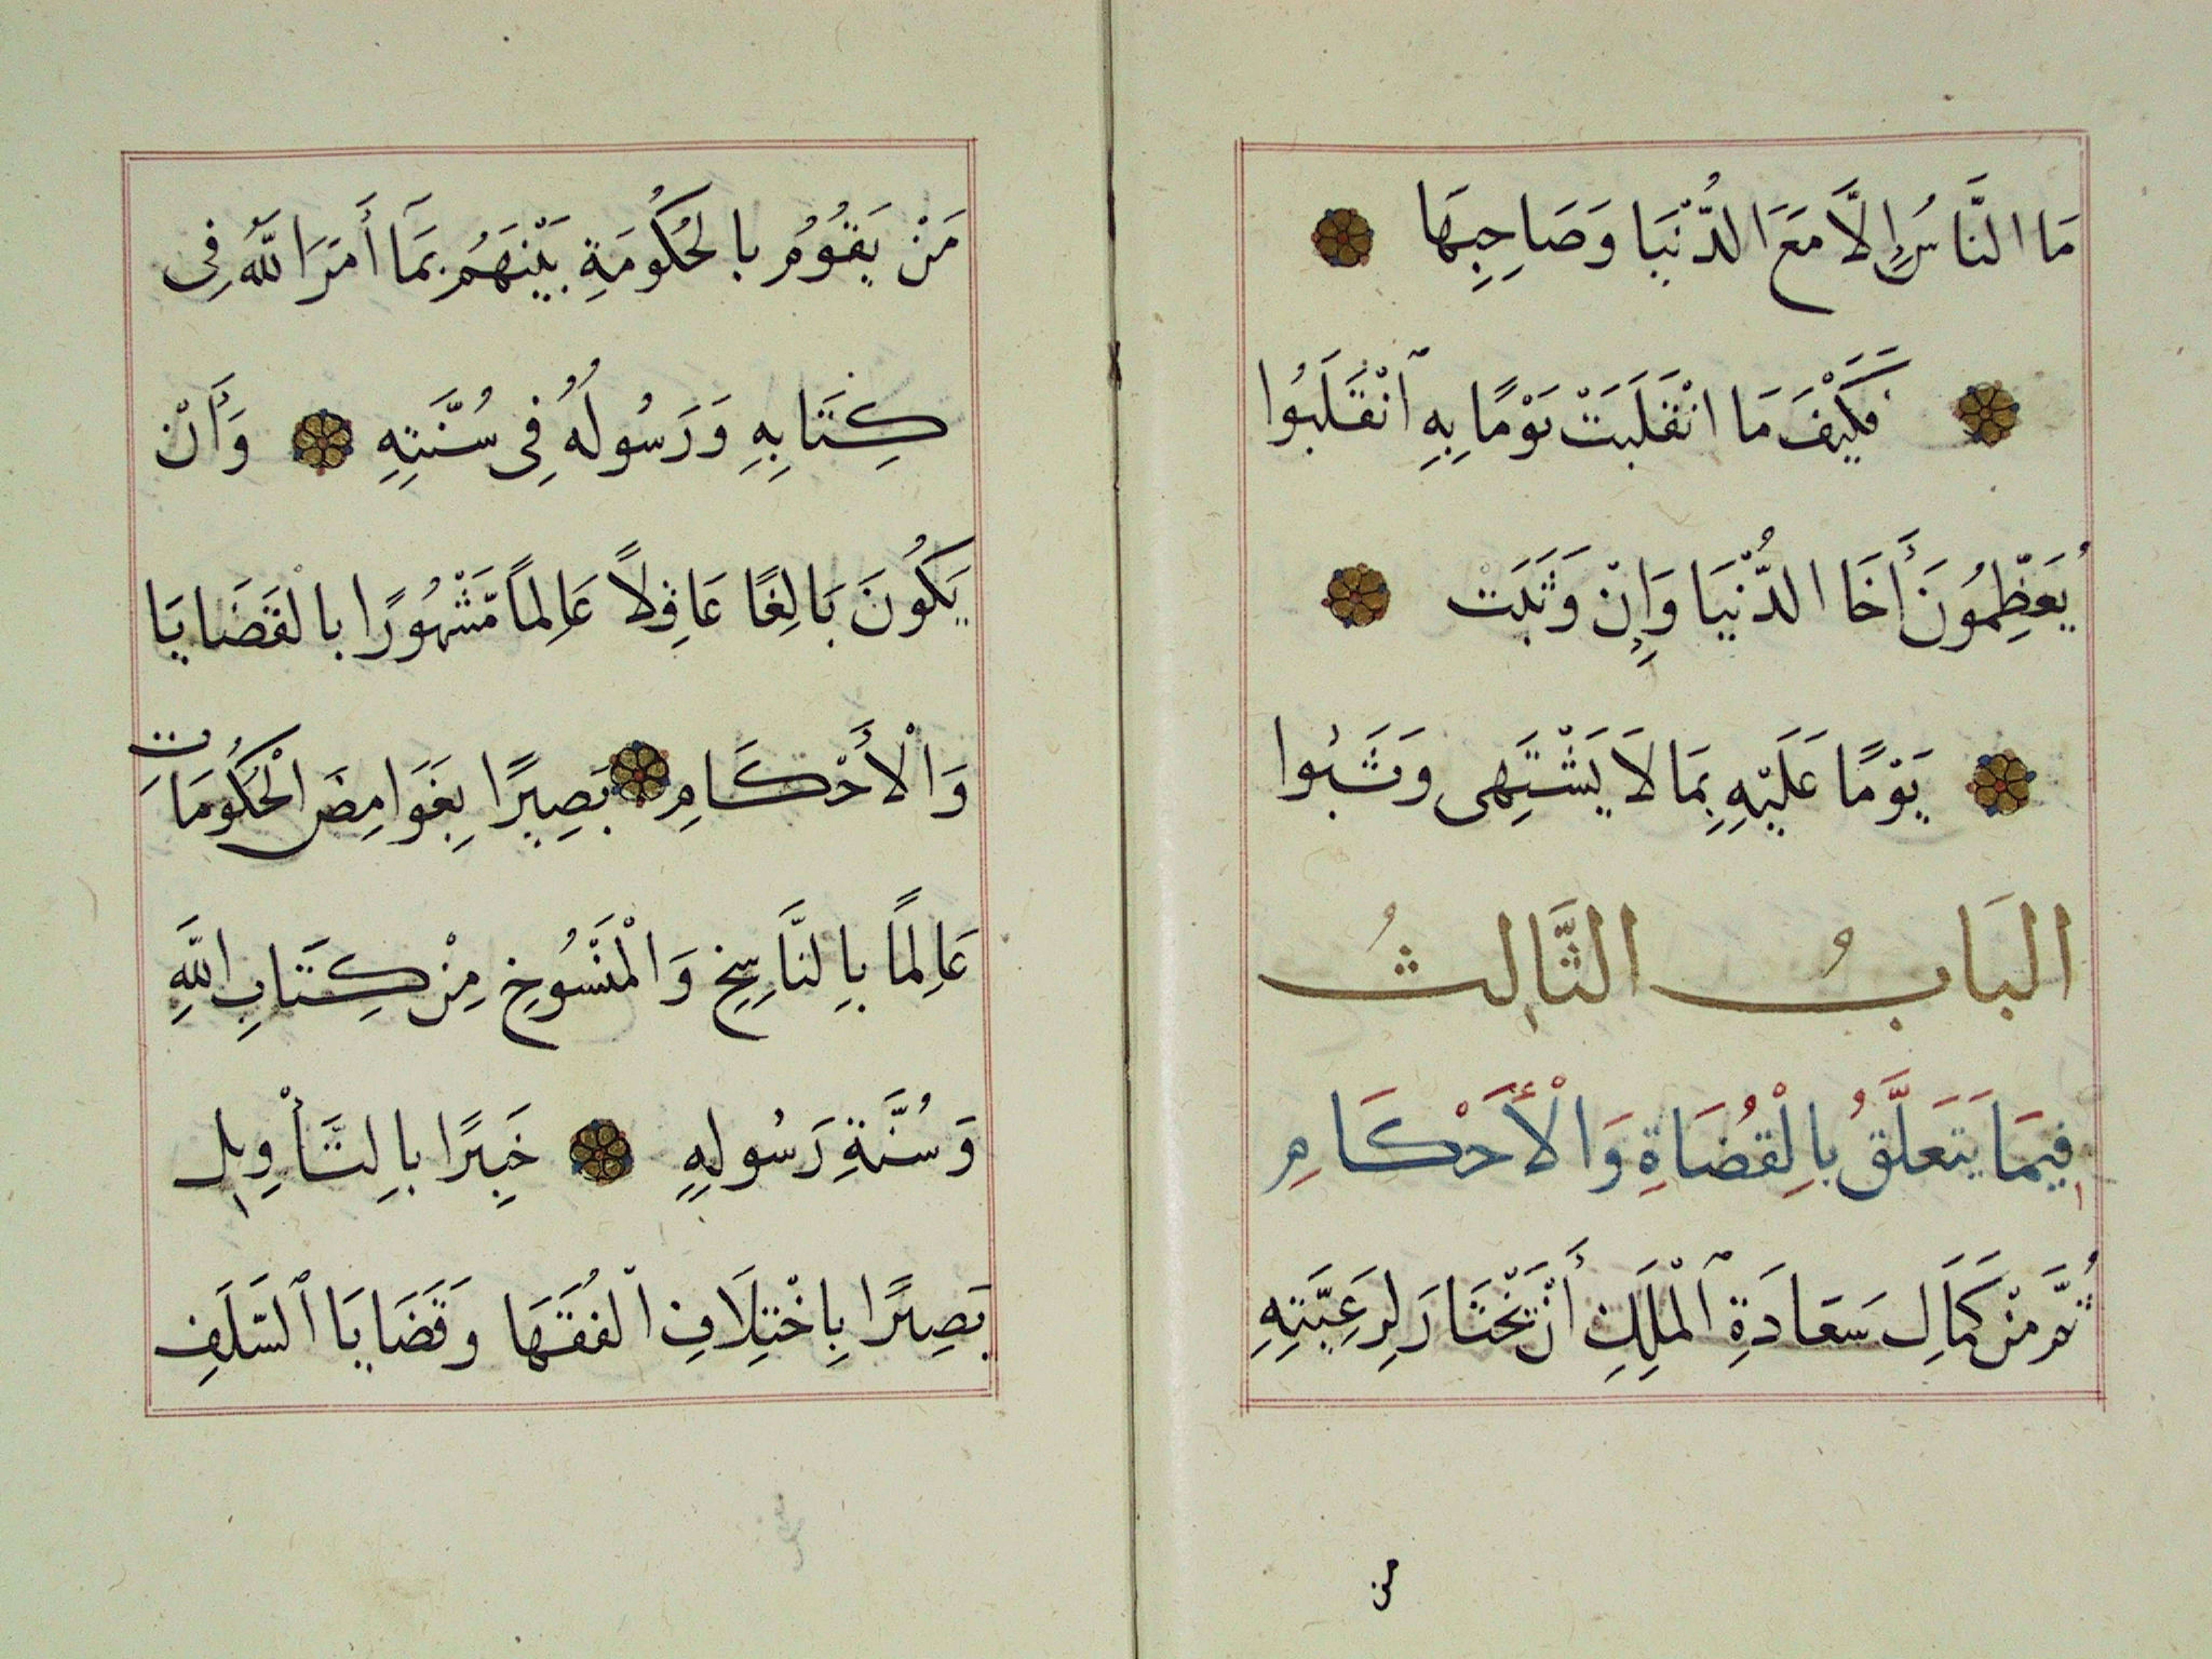 مَا النَّاسُ إِلَّا مَعَ الدُّنْيَا وَصَاحِبِهَا
فَكَيْفَ مَا انْقَلَبَتْ يَوْمًا بِهِ انْقَلَبُوا
يُعَظِّمُونَ أَخَا الدُّنْيَا وَإِنْ وَثَبَتْ
يَوْمًا عَلَيْهِ بِمَا لَا يَشْتَهِى وَثَبُوا
البَابُ الثَّالِثُ
فِيمَا يَتَعَلَّقُ بِالْقُضَاةِ وَالْأَحْكَامِ
ثُمَّ مِنْ كَمَالِ سَعَادَةِ الْمَلِكِ أَنْ يَخْتَارَ لِرَعِيَّتِهِ
من
مَنْ يَقُوُمُ بالحُكُومَةِ بَيْنَهَمُ بِمَا أَمَرَ اللَّهُ فِى
كِتَابِهِ وَرَسُولُهُ فِى سُنَّتِهِ وَأَنْ
يَكُونَ بَالِغًا عَاقِلًا عَالِمًا مَّشْهُورًا بالْقَضَايَا
وَالْأَحْكَامِ بَصِيرًا بِغَوَامِضِ الْحُكُومَاتِ
عَالِمًا بِالنَّاسِخِ وَالْمَنْسُوخِ مِنْ كِتَابِ اللَّهِ
وَسُنَّةِ رَسُولِهِ خَبِيرًا بِالتَّأْوِيلِ
بَصِيرًا بِاخْتِلَافِ الْفُقَهَا وَقَضَايَا السَّلَفِ